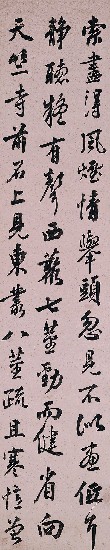 索盡得風煙情舉頭忽見不似畫低耳
靜聽疑有聲西叢七莖勁而健省向
天竺寺前石上見東叢八莖疏且寒憶曾